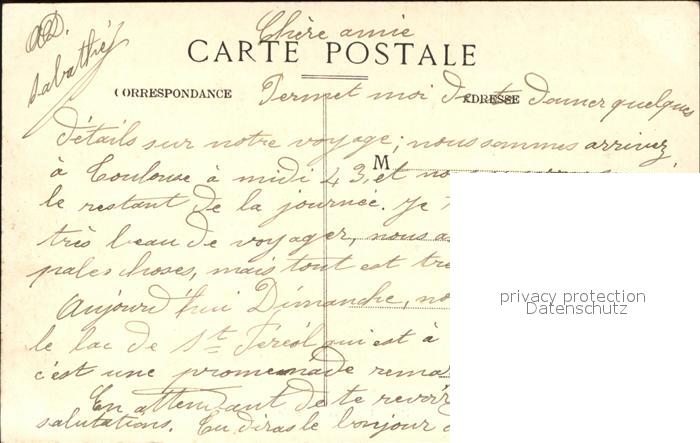 Chère amie
CARTE POSTALE
CORRESPONDANCE
ADRESSE
M
Permet moi de te donner quelques
détails sur notre voyage; nous sommes arrivez
à Toulouse à midi 43, et
le restant de la journée. Je
très beau de voyager, nous
pales choses, mais tout est
Aujourd'hui Dimanche,
le lac de St Féréol qui est à
c'est une promenade
En attendant de te revoir
salutations. Tu diras le bonjour
Sabathié
privacy protection
Datenschutz